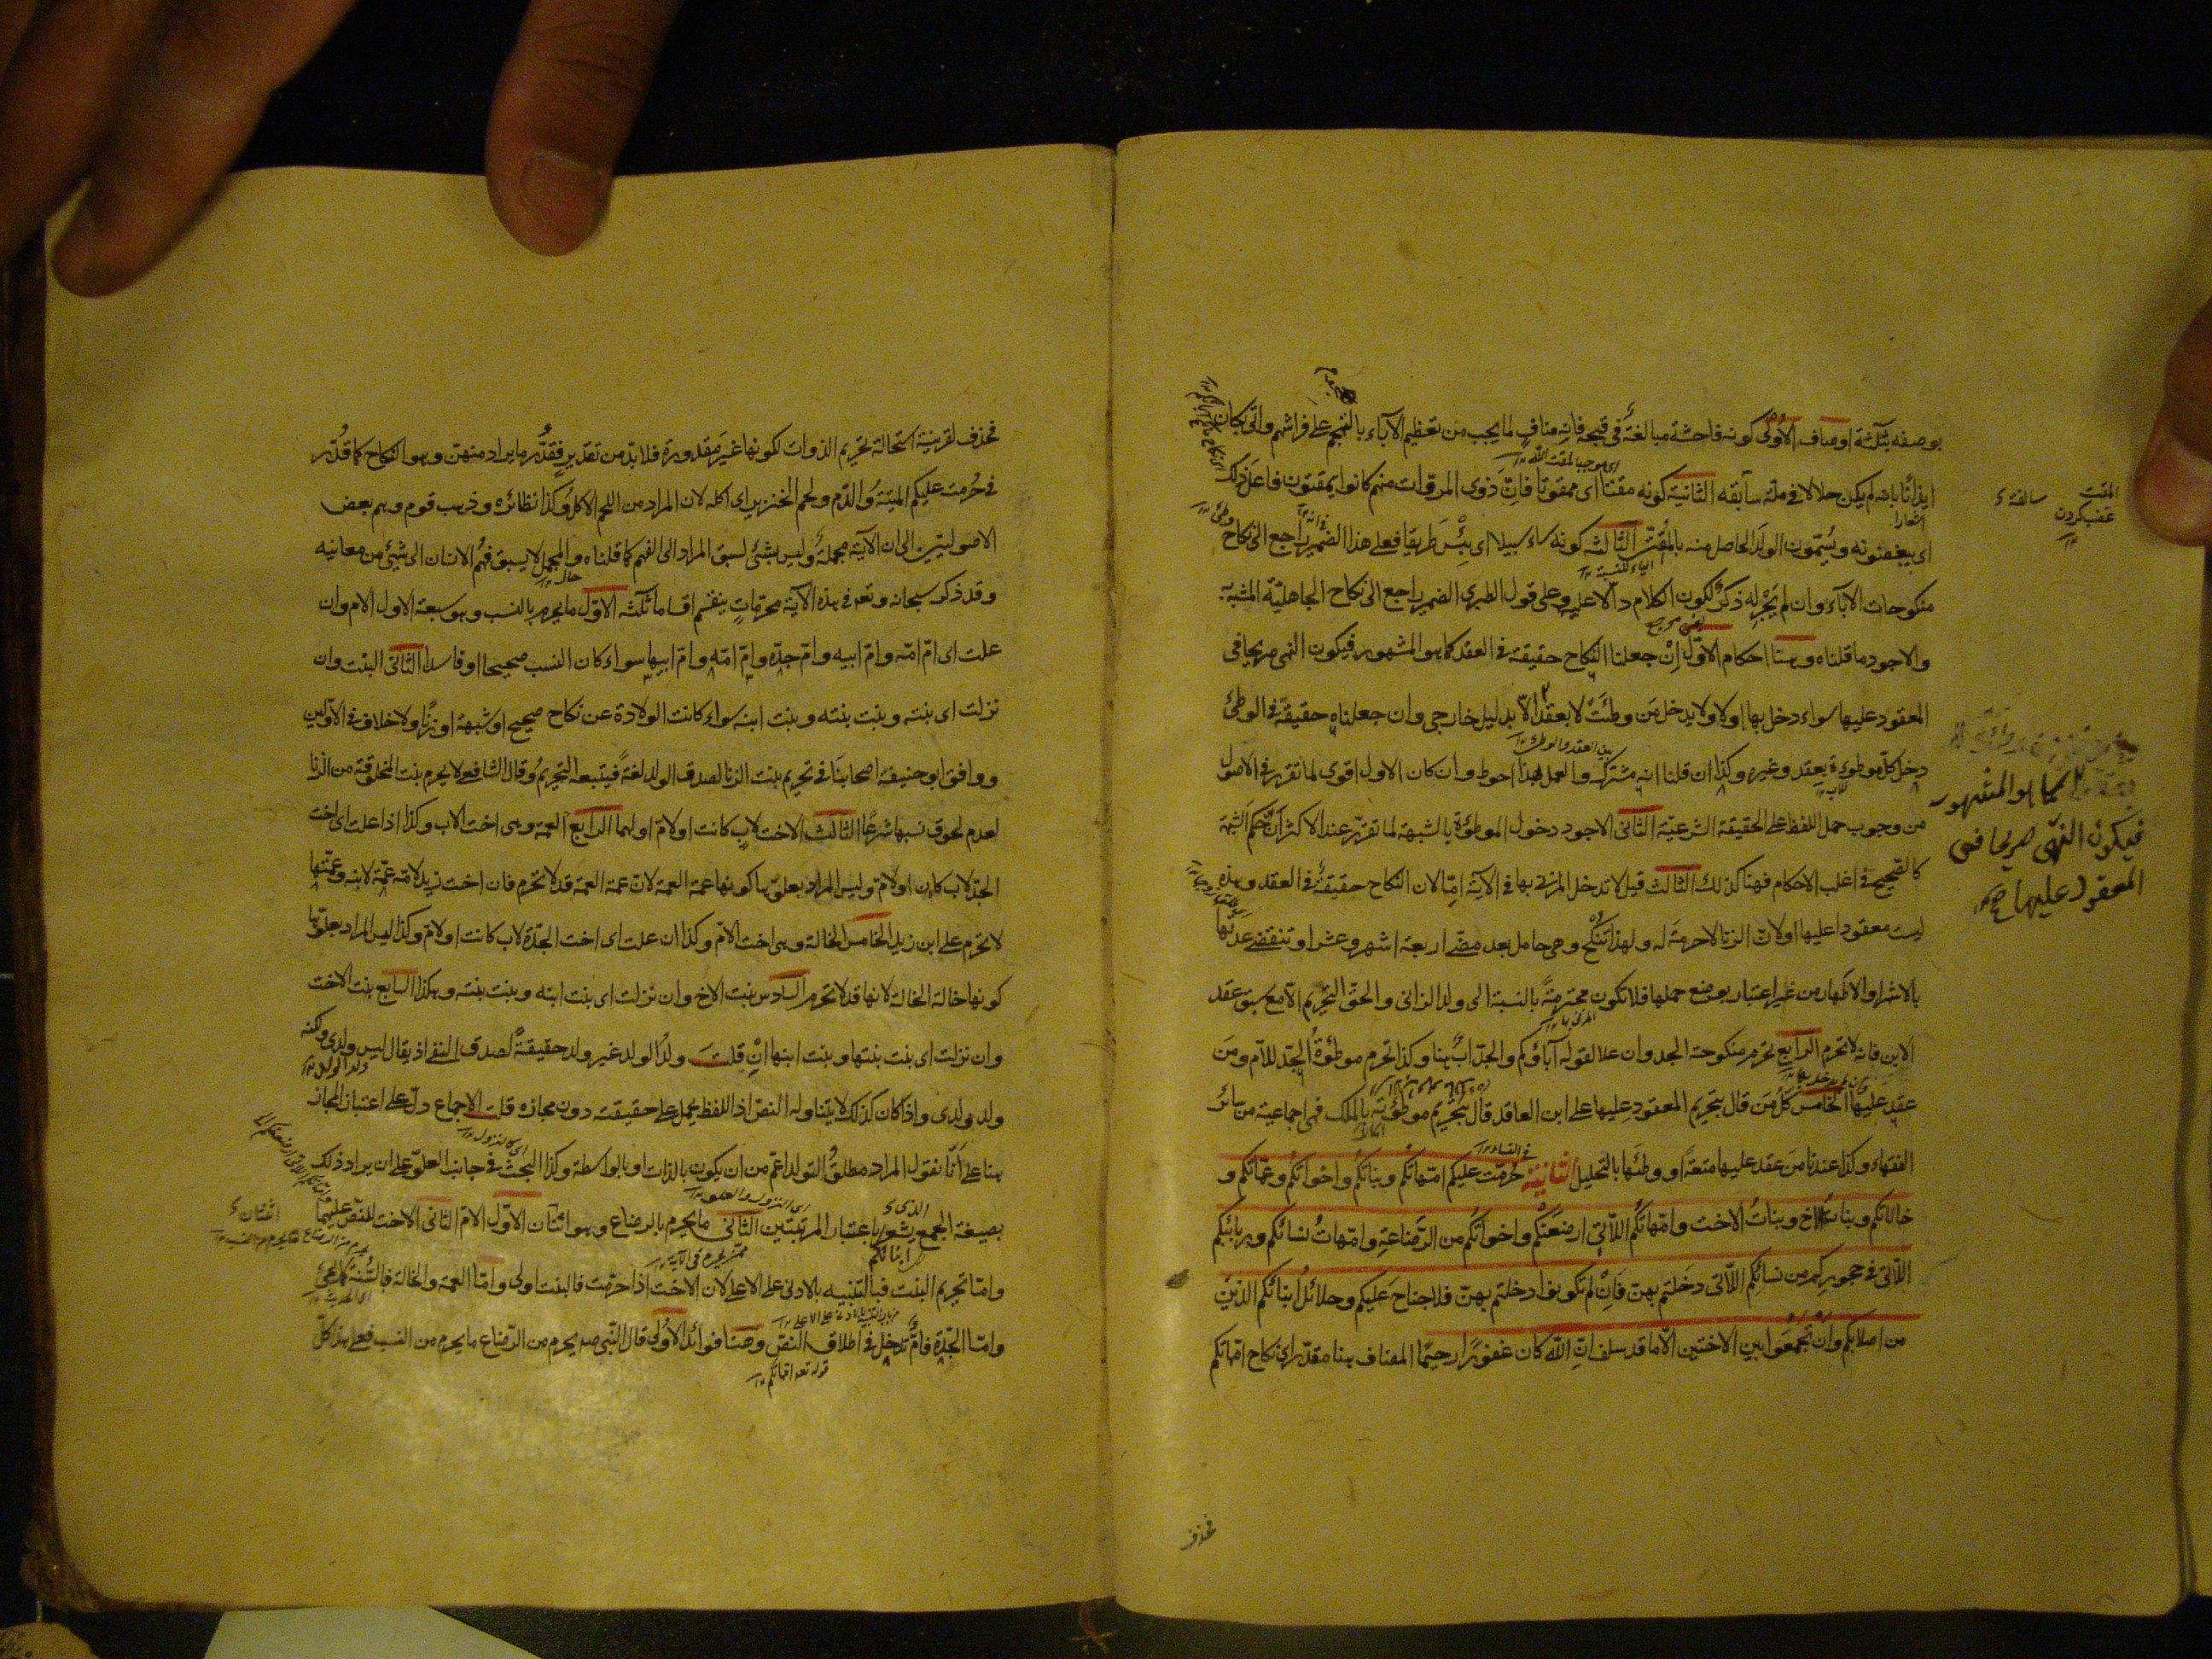 بوصفه بثلثة اوصاف الاولى كونه فاحشة مبالغة فى قبحه فانه مناف لما يجب من تعظيم الآباء بالتهجم على فراشهم واتى بكان
ايذانا بانه لم يكن حلالا فى ملة سابقه الثانية كونه مقتا اى ممقوتا فان ذوى المروات منهم كانوا يمقتون فاعل ذلك
اى يبغضونه ويسمون الولد الحاصل منه بالمقتى الثالثة كونه ساء سبيلا اى بئس طريقا فعلى هذا الضمير راجع الى نكاح
منكوحات الآباء وان لم يجر له ذكر لكون الكلام دالا عليه وعلى قول الطبرى الضمير راجع الى نكاح الجاهلية المشبه به
والاجود ما قلناه وهنا احكام الاول ان جعلنا النكاح حقيقة فى العقد كما هو المشهور فيكون النهى صريحا فى
المعقود عليها سواء دخل بها اولا ولا يدخل من وطئت لا بعقد الا بدليل خارجى وان جعلناه حقيقة فى الوطئ
دخل كل موطوءة بعقد وغيره وكذا ان قلنا انه مشترك والعمل بهذا احوط وان كان الاول اقوى لما تقرر فى الاصول
من وجوب حمل اللفظ على الحقيقة الشرعية الثانى الاجود دخول الموطوءة بالشبهة لما تقرر عند الاكثر ان حكم الشبهة
كالصحيح فى اغلب الاحكام فهنا كذلك الثالث قيل لا تدخل المزنى بها فى الآية اما لان النكاح حقيقة فى العقد وهذه
ليست معقودا عليها اولان الزنا لا حرمة له ولهذا تنكح وهى حامل بعد مضى اربعة اشهر وعشرا وتنقضى عدتها
بالاشهر او الاطهار من غير اعتبار بوضع حملها فلا تكون محترمة بالنسبة الى ولد الزانى والحق التحريم الا مع سبق عقد
الابن فانه لا تحرم الرابع تحرم منكوحة الجد وان علا لقوله آباؤكم والجد اب هنا وكذا تحرم موطوءة الجد للام ومن
عقد عليها الخامس كل من قال بتحريم المعقود عليها على ابن العاقد قال بتحريم موطوءته بالملك فهى اجماعية من سائر
الفقهاء وكذا عندنا من عقد عليها متعة او وطئها بالتحليل الثانية حرمت عليكم امهاتكم وبناتكم واخواتكم وعماتكم و
خالاتكم وبنات الاخ وبنات الاخت وامهاتكم اللاتى ارضعنكم واخواتكم من الرضاعة وامهات نسائكم وربائبكم
اللاتى فى حجوركم من نسائكم اللاتى دخلتم بهن فان لم تكونوا دخلتم بهن فلا جناح عليكم وحلائل ابنائكم الذين
من اصلابكم وان تجمعوا بين الاختين الا ما قد سلف ان الله كان غفورا رحيما المضاف هنا مقدر اى نكاح امهاتكم
المقت
غضب كردن
كما هو المشهور
فيكون النهى صريحا فى
المعقود عليها صح
فحذف
فحذف لقرينة استحالة تحريم الذوات لكونها غير مقدورة فلا بد من تقدير فقدر ما يراد منهن وهو النكاح كما قدر
فى حرمت عليكم الميتة والدم ولحم الخنزير اى اكله لان المراد من اللحم الاكل وكذا نظائره وذهب قوم وهم بعض
الاصوليين الى ان الآية مجملة وليس بشئ لسبق المراد الى الفهم كما قلناه والمجمل لا يسبق فهم الانسان الى شئ من معانيه
وقد ذكر سبحانه وتعه فى هذه الآية محرمات ينقسم اقساما ثلثة الاول ما يحرم بالنسب وهو سبعة الاول الام وان
علت اى ام امه وام ابيه وام جده وام امه وام ابيها سواء كان النسب صحيحا او فاسدا الثانى البنت وان
نزلت اى بنته وبنت بنته وبنت ابنه سواء كانت الولادة عن نكاح صحيح او شبهة او زنا ولا خلاف فى الاولين
ووافق ابو حنيفة اصحابنا فى تحريم بنت الزنا لصدق الولد لغة فيتبعه التحريم وقال الشافعى لا يحرم بنت المخلوقة من الزنا
لعدم لحوق نسبها شرعا الثالث الاخت لاب كانت او لام او لهما الرابع العمة وهى اخت الاب وكذا اذا علت اى اخت
الجد لاب كان او لام وليس المراد بعلوها كونها عمة العمة لان عمة العمة قد لا تحرم فان اخت زيد لامه عمة لابنه وعمتها
لا تحرم على ابن زيد الخامس الخالة وهى اخت الام وكذا ان علت اى اخت الجدة لاب كانت او لام وكذا ليس المراد بعلوها
كونها خالة الخالة لانها قد لا تحرم السادس بنت الاخ وان نزلت اى بنت ابنه وبنت بنته وهكذا السابع بنت الاخت
وان نزلت اى بنت بنتها وبنت ابنها ان قلت ولد الولد غير ولد حقيقة لصدق النفى اذ يقال ليس ولدى ولكنه
ولد ولدى واذا كان كذلك لا يتناوله النص اذ اللفظ يحمل على حقيقته دون مجازه قلت الاجماع دل على اعتبار المجاز
هنا على انا نقول المراد مطلق التولد اعم من ان يكون بالذات او بالواسطة وكذا البحث فى جانب العلو على ان يراد ذلك
بصيغة الجمع يشعر باعتبار المرتبتين الثانى ما يحرم بالرضاع وهو اثنان الاول الام الثانى الاخت للنص عليهما
واما تحريم البنت فبالتنبيه بالادنى على الاعلى لان الاخت اذا حرمت فالبنت اولى واما العمة والخالة فبالسنة كما يجئ
واما الجدة فام تدخل فى اطلاق النص وهنا فوائد الاولى قال النبى صم يحرم من الرضاع ما يحرم من النسب فعلى هذا كل
قوله تعه امهاتكم